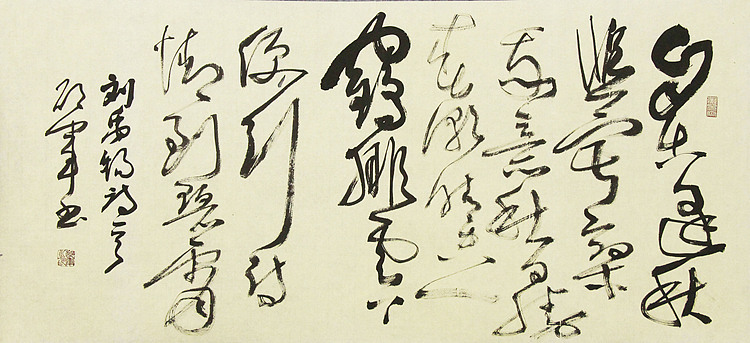 自古逢秋
悲寂寥
我言秋日勝
春朝晴空一
鶴排雲上
便引詩
情到碧霄
刘禹锡詩
书